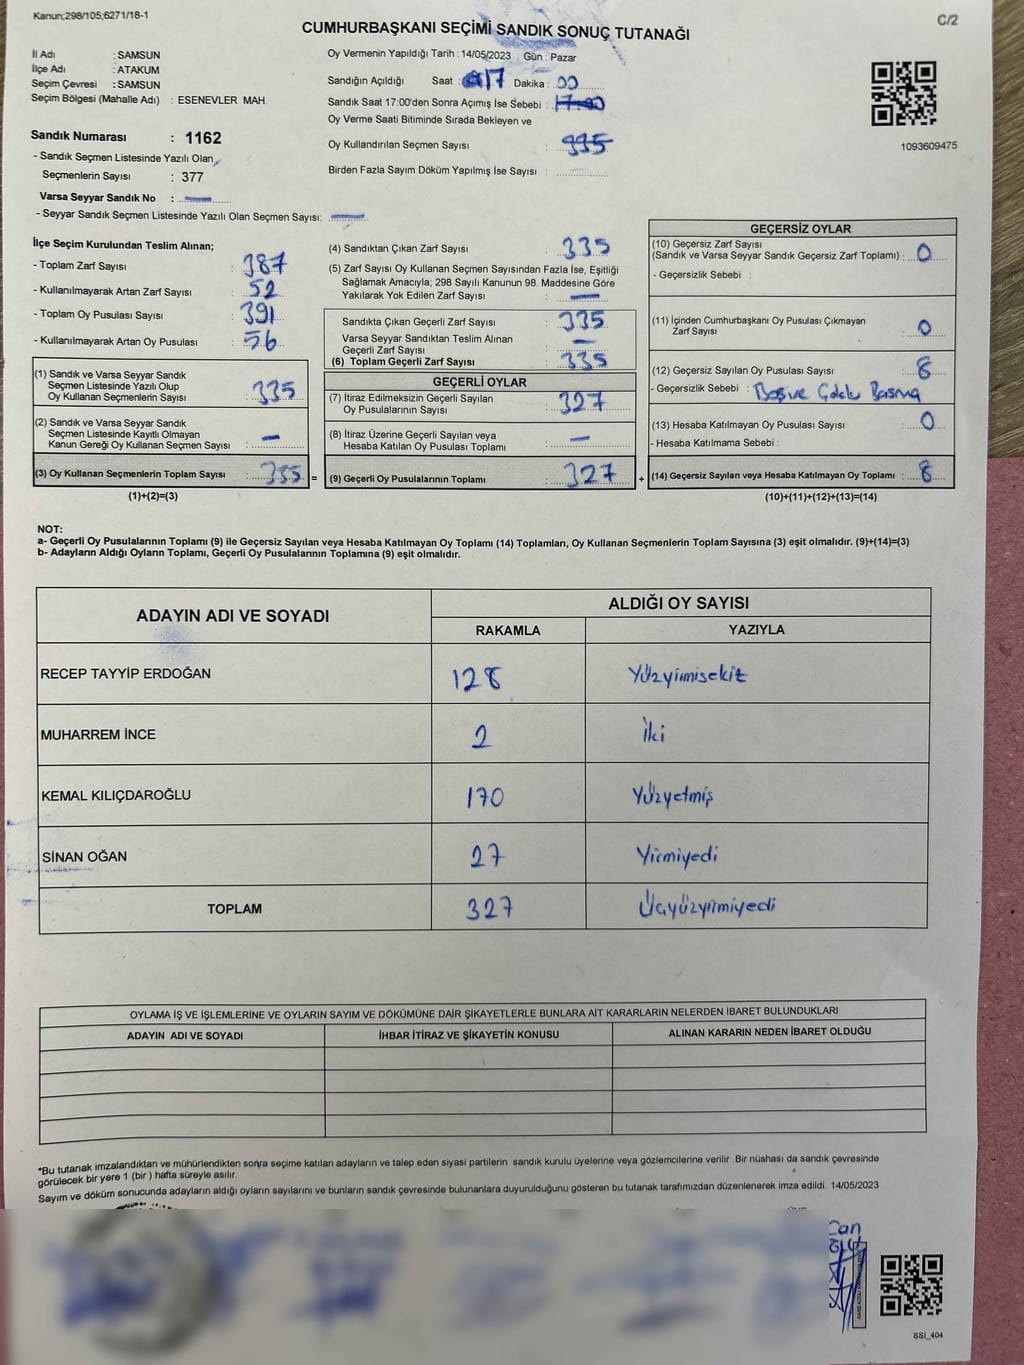 Kanun;298/105;6271/18-1
C/2
CUMHURBAŞKANI SEÇİMİ SANDIK SONUÇ TUTANAĞI
İl Adı : SAMSUN
İlçe Adı : ATAKUM
Seçim Çevresi : SAMSUN
Seçim Bölgesi (Mahalle Adı) : ESENEVLER MAH.
Oy Vermenin Yapıldığı Tarih : 14/05/2023 Gün : Pazar
Sandığın Açıldığı Saat : 17 Dakika : 00
Sandık Saat 17:00'den Sonra Açımış İse Sebebi : 17:00
Oy Verme Saati Bitiminde Sırada Bekleyen ve
Oy Kullandırılan Seçmen Sayısı : 335
Birden Fazla Sayım Döküm Yapılmış İse Sayısı :
1093609475
Sandık Numarası : 1162
- Sandık Seçmen Listesinde Yazılı Olan
Seçmenlerin Sayısı : 377
Varsa Seyyar Sandık No : —
- Seyyar Sandık Seçmen Listesinde Yazılı Olan Seçmen Sayısı: —
İlçe Seçim Kurulundan Teslim Alınan;
- Toplam Zarf Sayısı : 387
- Kullanılmayarak Artan Zarf Sayısı : 52
- Toplam Oy Pusulası Sayısı : 391
- Kullanılmayarak Artan Oy Pusulası : 56
(1) Sandık ve Varsa Seyyar Sandık
Seçmen Listesinde Yazılı Olup
Oy Kullanan Seçmenlerin Sayısı : 335
(2) Sandık ve Varsa Seyyar Sandık
Seçmen Listesinde Kayıtlı Olmayan
Kanun Gereği Oy Kullanan Seçmen Sayısı : —
(3) Oy Kullanan Seçmenlerin Toplam Sayısı : 335 =
(1)+(2)=(3)
(4) Sandıktan Çıkan Zarf Sayısı : 335
(5) Zarf Sayısı Oy Kullanan Seçmen Sayısından Fazla İse, Eşitliği
Sağlamak Amacıyla; 298 Sayılı Kanunun 98. Maddesine Göre
Yakılarak Yok Edilen Zarf Sayısı : —
Sandıkta Çıkan Geçerli Zarf Sayısı : 335
Varsa Seyyar Sandıktan Teslim Alınan
Geçerli Zarf Sayısı : —
(6) Toplam Geçerli Zarf Sayısı : 335
GEÇERLİ OYLAR
(7) İtiraz Edilmeksizin Geçerli Sayılan
Oy Pusulalarının Sayısı : 327
(8) İtiraz Üzerine Geçerli Sayılan veya
Hesaba Katılan Oy Pusulası Toplamı : —
(9) Geçerli Oy Pusulalarının Toplamı : 327 +
GEÇERSİZ OYLAR
(10) Geçersiz Zarf Sayısı
(Sandık ve Varsa Seyyar Sandık Geçersiz Zarf Toplamı) : 0
- Geçersizlik Sebebi :
(11) İçinden Cumhurbaşkanı Oy Pusulası Çıkmayan
Zarf Sayısı : 0
(12) Geçersiz Sayılan Oy Pusulası Sayısı : 8
- Geçersizlik Sebebi : Boş ve Çoklu Basma
(13) Hesaba Katılmayan Oy Pusulası Sayısı : 0
- Hesaba Katılmama Sebebi :
(14) Geçersiz Sayılan veya Hesaba Katılmayan Oy Toplamı : 8
(10)+(11)+(12)+(13)=(14)
NOT:
a- Geçerli Oy Pusulalarının Toplamı (9) ile Geçersiz Sayılan veya Hesaba Katılmayan Oy Toplamı (14) Toplamları, Oy Kullanan Seçmenlerin Toplam Sayısına (3) eşit olmalıdır. (9)+(14)=(3)
b- Adayların Aldığı Oyların Toplamı, Geçerli Oy Pusulalarının Toplamına (9) eşit olmalıdır.
ADAYIN ADI VE SOYADI
ALDIĞI OY SAYISI
RAKAMLA YAZIYLA
RECEP TAYYİP ERDOĞAN 128 Yüzyirmisekiz
MUHARREM İNCE 2 İki
KEMAL KILIÇDAROĞLU 170 Yüzyetmiş
SİNAN OĞAN 27 Yirmiyedi
TOPLAM 327 Üçyüzyirmiyedi
OYLAMA İŞ VE İŞLEMLERİNE VE OYLARIN SAYIM VE DÖKÜMÜNE DAİR ŞİKAYETLERLE BUNLARA AİT KARARLARIN NELERDEN İBARET BULUNDUKLARI
ADAYIN ADI VE SOYADI İHBAR İTİRAZ VE ŞİKAYETİN KONUSU ALINAN KARARIN NEDEN İBARET OLDUĞU
*Bu tutanak imzalandıktan ve mühürlendikten sonra seçime katılan adayların ve talep eden siyasi partilerin sandık kurulu üyelerine veya gözlemcilerine verilir .Bir nüshası da sandık çevresinde
görülecek bir yere 1 (bir ) hafta süreyle asılır.
Sayım ve döküm sonucunda adayların aldığı oyların sayılarını ve bunların sandık çevresinde bulunanlara duyurulduğunu gösteren bu tutanak tarafımızdan düzenlenerek imza edildi. 14/05/2023
Can
SSI_404